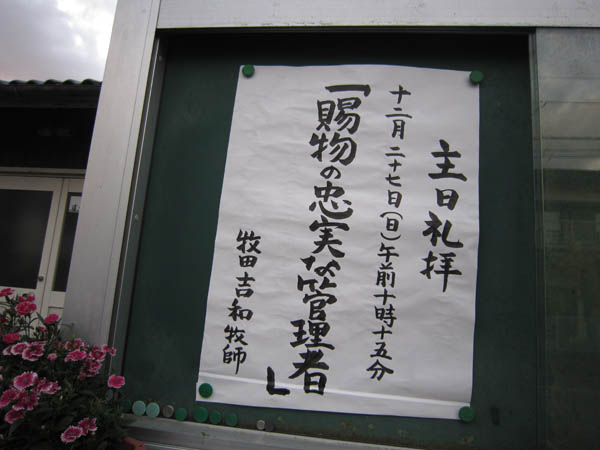 主日礼拝
十二月二十七日(日)午前十時十五分
「賜物の忠実な管理者」
牧田吉和牧師